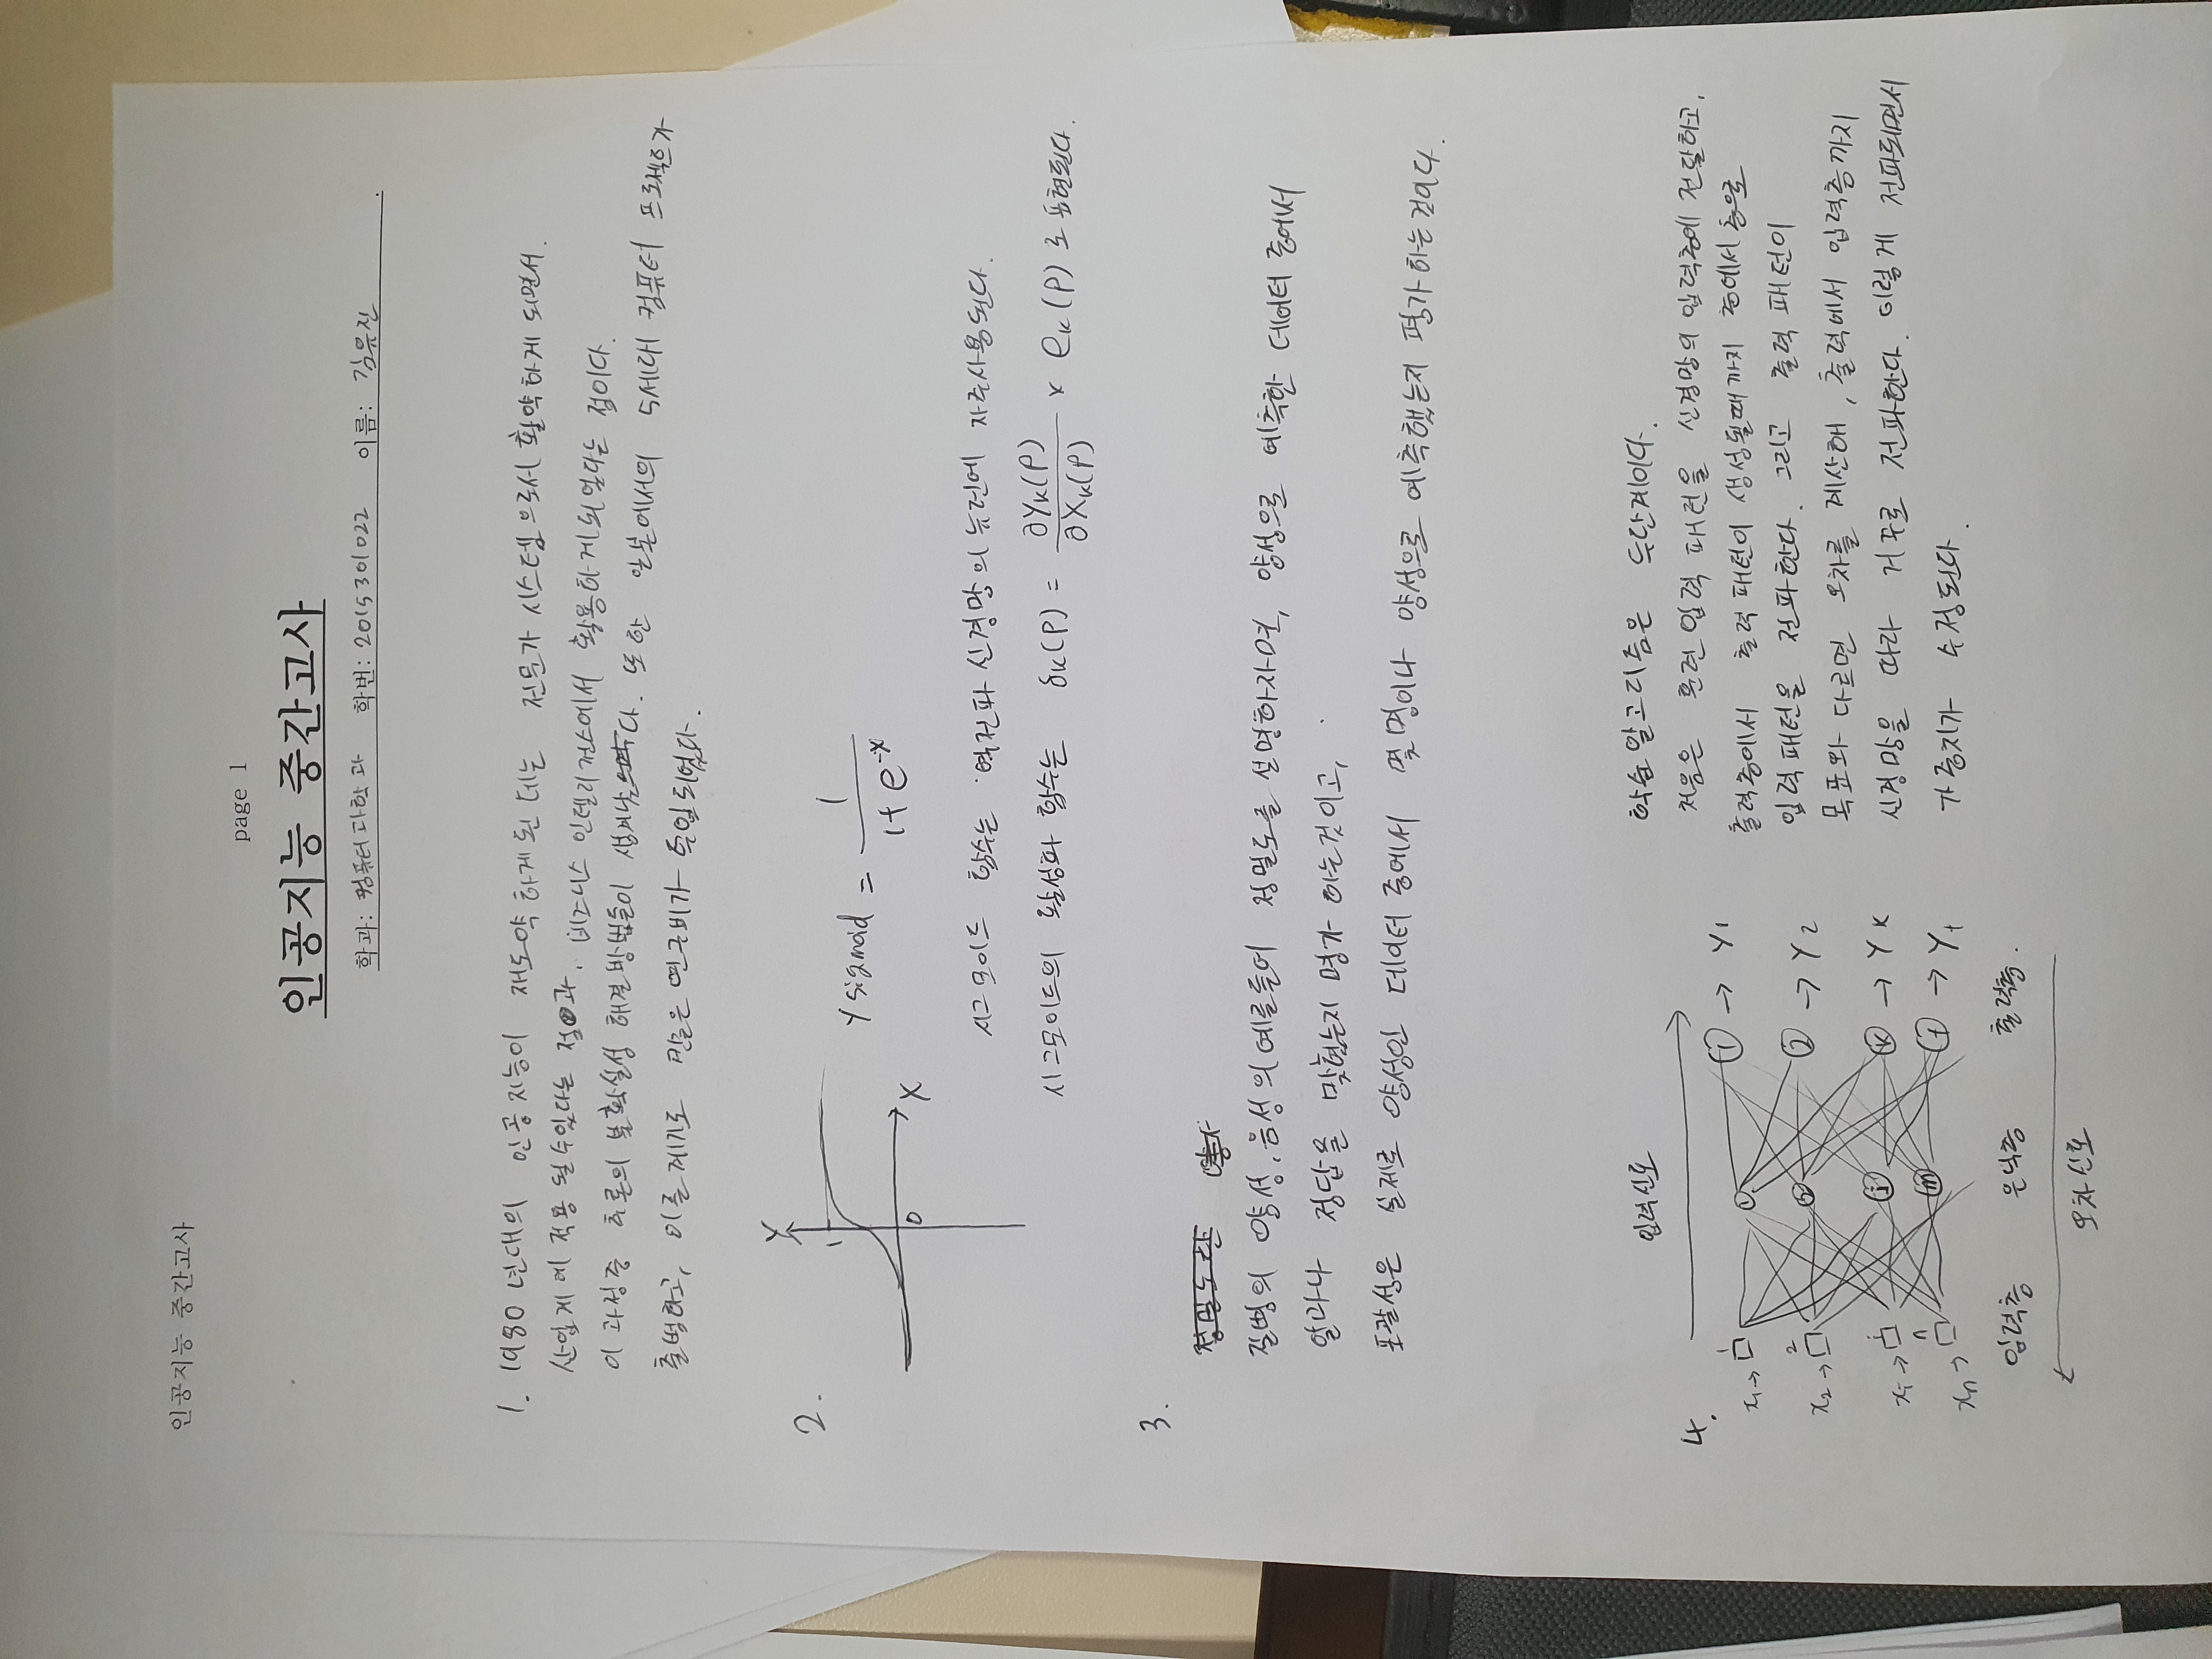 인공지능 중간고사
page 1
인공지능 중간고사
학과: 컴퓨터과학과 학번: 2015301022 이름: 김유진 .
1. 1980년대의 인공지능이 재도약하게 된 데는 전문가 시스템으로서 활약하게 되면서.
산업계에 적용 될 수 있다는 점과, 비즈니스 인텔리전스에서 활용하게 되었다는 점이다.
이 과정중 추론의 불확실성 해결방법들이 생겨났다. 또한 일본에서의 5세대 컴퓨터 프로젝트가
출범하고, 이를 계기로 많은 연구비가 투입되었다.
2.
Y
1
0
X
Y sigmoid = 1 / (1 + e^-x)
시그모이드 함수는 역전파 신경망의 뉴런에 자주사용된다.
시그모이드의 활성화 함수는 δk(P) = ∂Yk(P) / ∂Xk(P) × ek(P) 로 표현된다.
3.
정밀도란
질병의 양성, 음성의 예를들어 정밀도를 설명하자면, 양성으로 예측한 데이터 중에서
얼마나 정답을 맞혔는지 평가 하는것이고,
포괄성은 실제로 양성인 데이터 중에서 몇 명이나 양성으로 예측했는지 평가하는것이다.
4.
입력신호
1 x1→ 1 1 → Y1
2 x2→ 2 2 → Y2
i xi→ j k → Yk
n xn→ m l → Yl
입력층 은닉층 출력층.
오차신호
학습 알고리즘은 두단계이다.
처음은 훈련 입력 패턴을 신경망의 입력층에 전달하고,
출력층에서 출력 패턴이 생성될때까지 층에서 층으로
입력패턴을 전파한다. 그리고 출력 패턴이
목표와 다르면 오차를 계산해, 출력에서 입력층까지
신경망을 따라 거꾸로 전파한다. 이렇게 전파되면서
가중치가 수정된다.